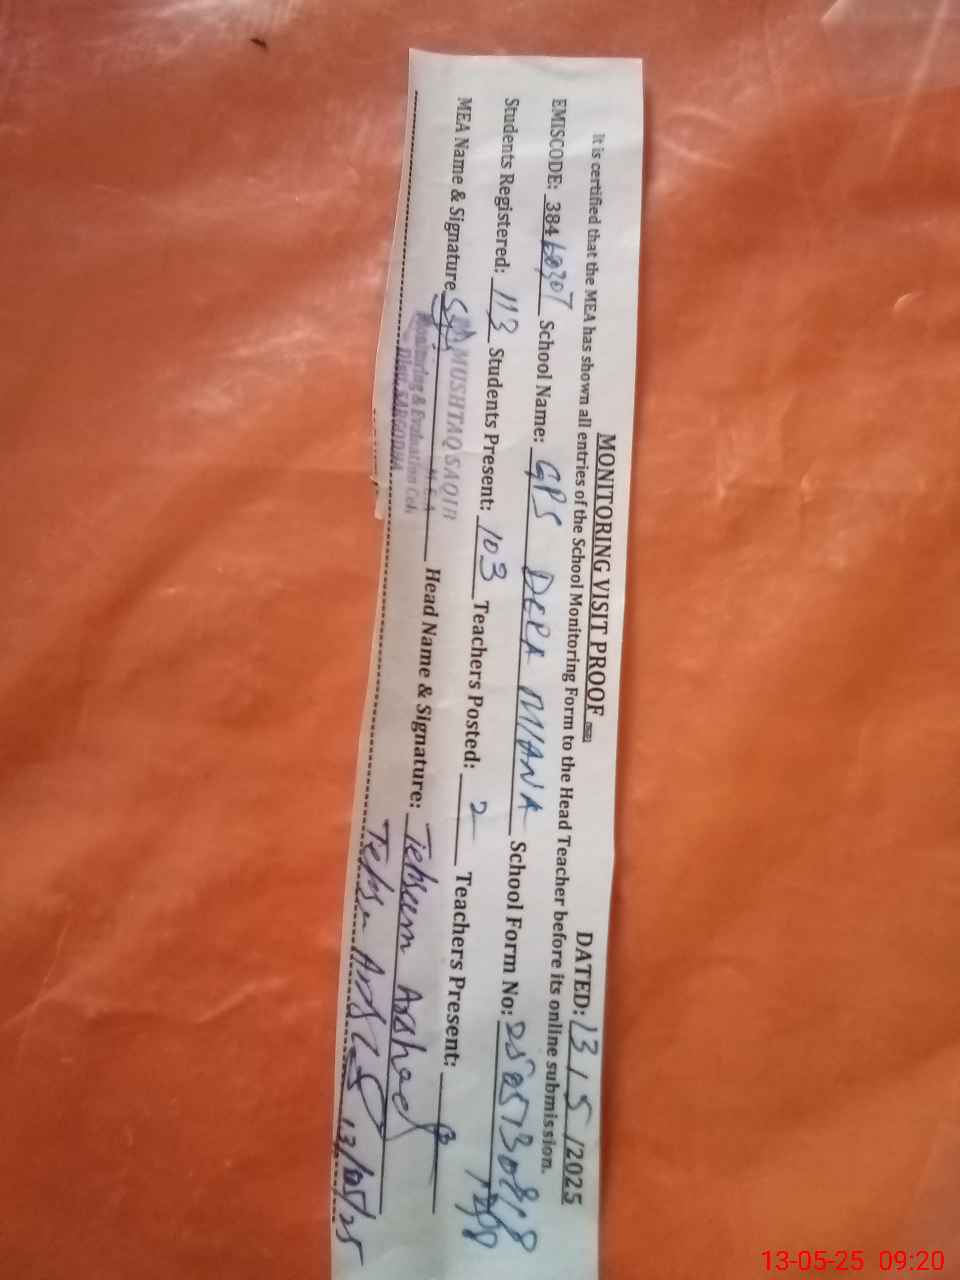 MONITORING VISIT PROOF DATED: 13 / 5 /2025
It is certified that the MEA has shown all entries of the School Monitoring Form to the Head Teacher before its online submission.
EMISCODE: 384 School Name: GPS DERA MIANA School Form No:
Students Registered: 113 Students Present: 103 Teachers Posted: 2 Teachers Present:
MEA Name & Signature MUSHTAQ SAQIB Head Name & Signature: Tebsum Arshad
M.E.A
Monitoring & Evaluation Cell
SARGODHA
13/05/25
13-05-25 09:20